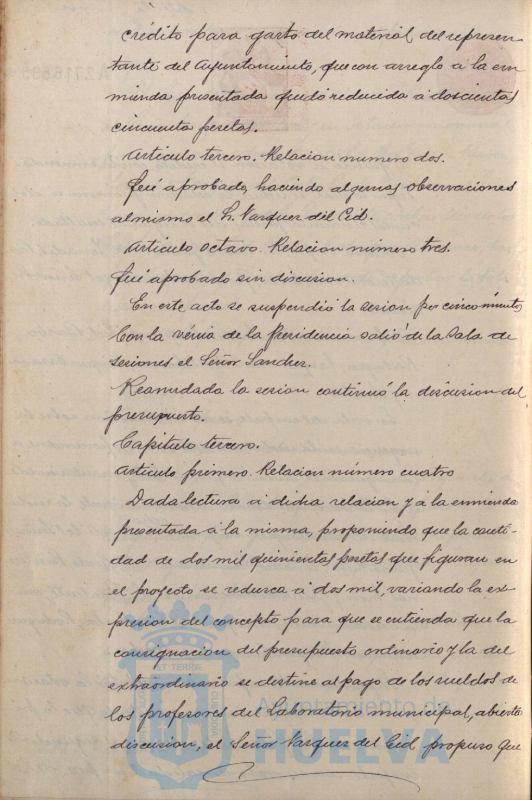 crédito para gasto del material del represen-
tante del Ayuntamiento, que con arreglo á la en-
mienda presentada quedó reducida á doscientas
cincuenta pesetas.
Articulo tercero. Relacion numero dos.
Fué aprobado, haciendo algunas observaciones
al mismo el Sr. Vazquez del Cid.
Articulo octavo. Relacion número tres.
Fué aprobado sin discusion.
En este acto se suspendió la sesion por cinco minutos
Con la vénia de la Presidencia salió de la Sala de
sesiones el Señor Sanchez.
Reanudada la sesion continuó la discusion del
presupuesto.
Capitulo tercero.
Articulo primero. Relacion número cuatro
Dada lectura á dicha relacion y á la enmienda
presentada á la misma, proponiendo que la canti-
dad de dos mil quinientas pesetas que figuran en
el proyecto se reduzca á dos mil, variando la ex-
presion del concepto para que se entienda que la
consignacion del presupuesto ordinario y la del
extraordinario se destine al pago de los sueldos de
los profesores del Laboratorio municipal, abierta
discusion, el Señor Vazquez del Cid propuso que
Ayuntamiento de
HUELVA